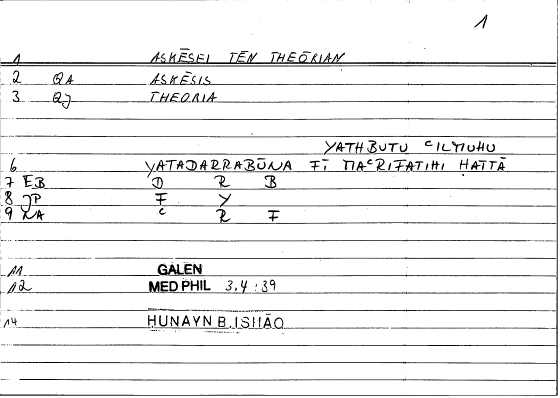 1
1 ASKĒSEI TĒN THEŌRIAN
2 QA ASKĒSIS
3 QJ THEORIA
YATHBUTU ᶜILMUHU
6 YATADARRABŪNA FĪ MAᶜRIFATIHI ḤATTĀ
7 EB D R B
8 JP F Y
9 NA ᶜ R F
11 GALEN
12 MED PHIL 3.4:39
14 HUNAYN B. ISHĀQ